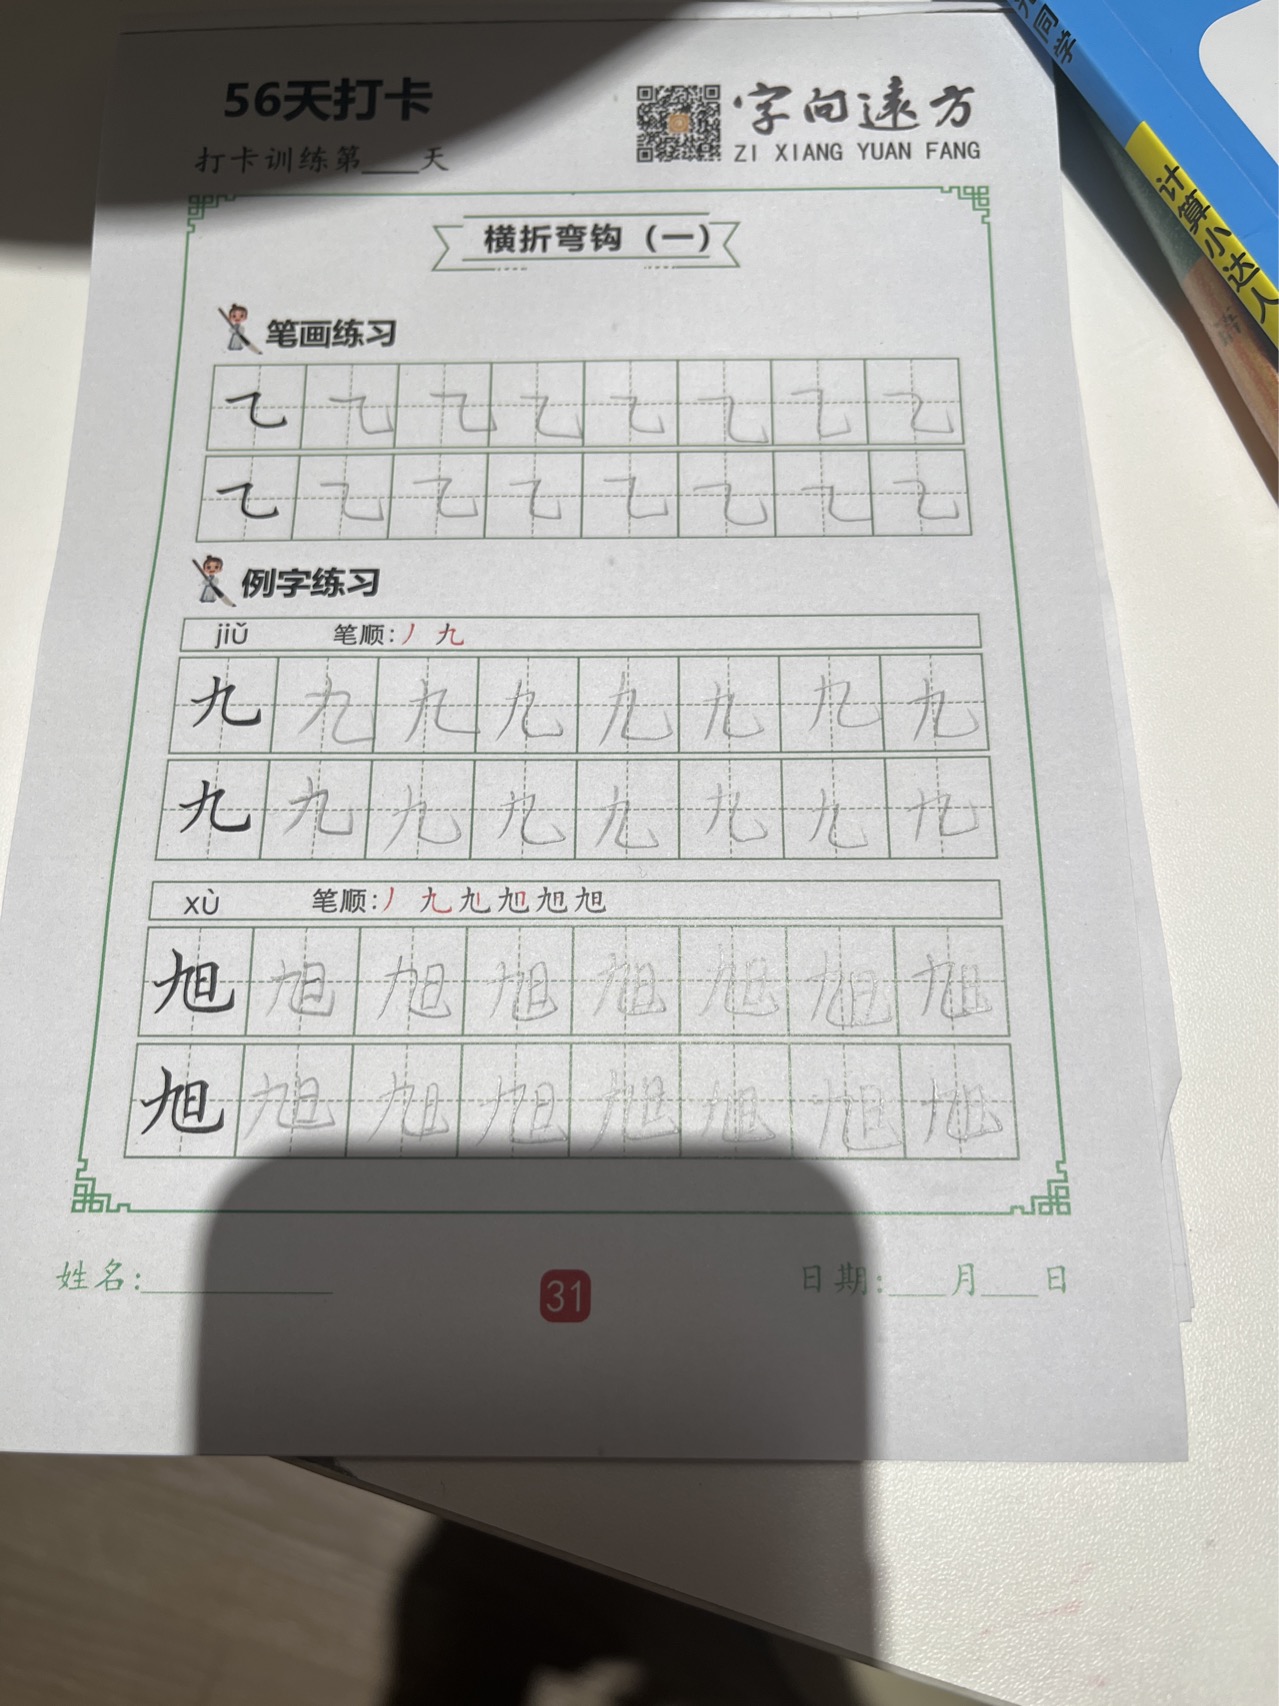 56天打卡
打卡训练第___天
字向远方
ZI XIANG YUAN FANG
同学
计算小达人
横折弯钩（一）
笔画练习
㇈ ㇈ ㇈ ㇈ ㇈ ㇈ ㇈ ㇈
㇈ ㇈ ㇈ ㇈ ㇈ ㇈ ㇈ ㇈
例字练习
jiǔ 笔顺:丿 九
九 九 九 九 九 九 九 九
九 九 九 九 九 九 九 九
xù 笔顺:丿 九 旭 旭 旭 旭
旭 旭 旭 旭 旭 旭 旭 旭
旭 旭 旭 旭 旭 旭 旭 旭
姓名:___________
31
日期:___月___日